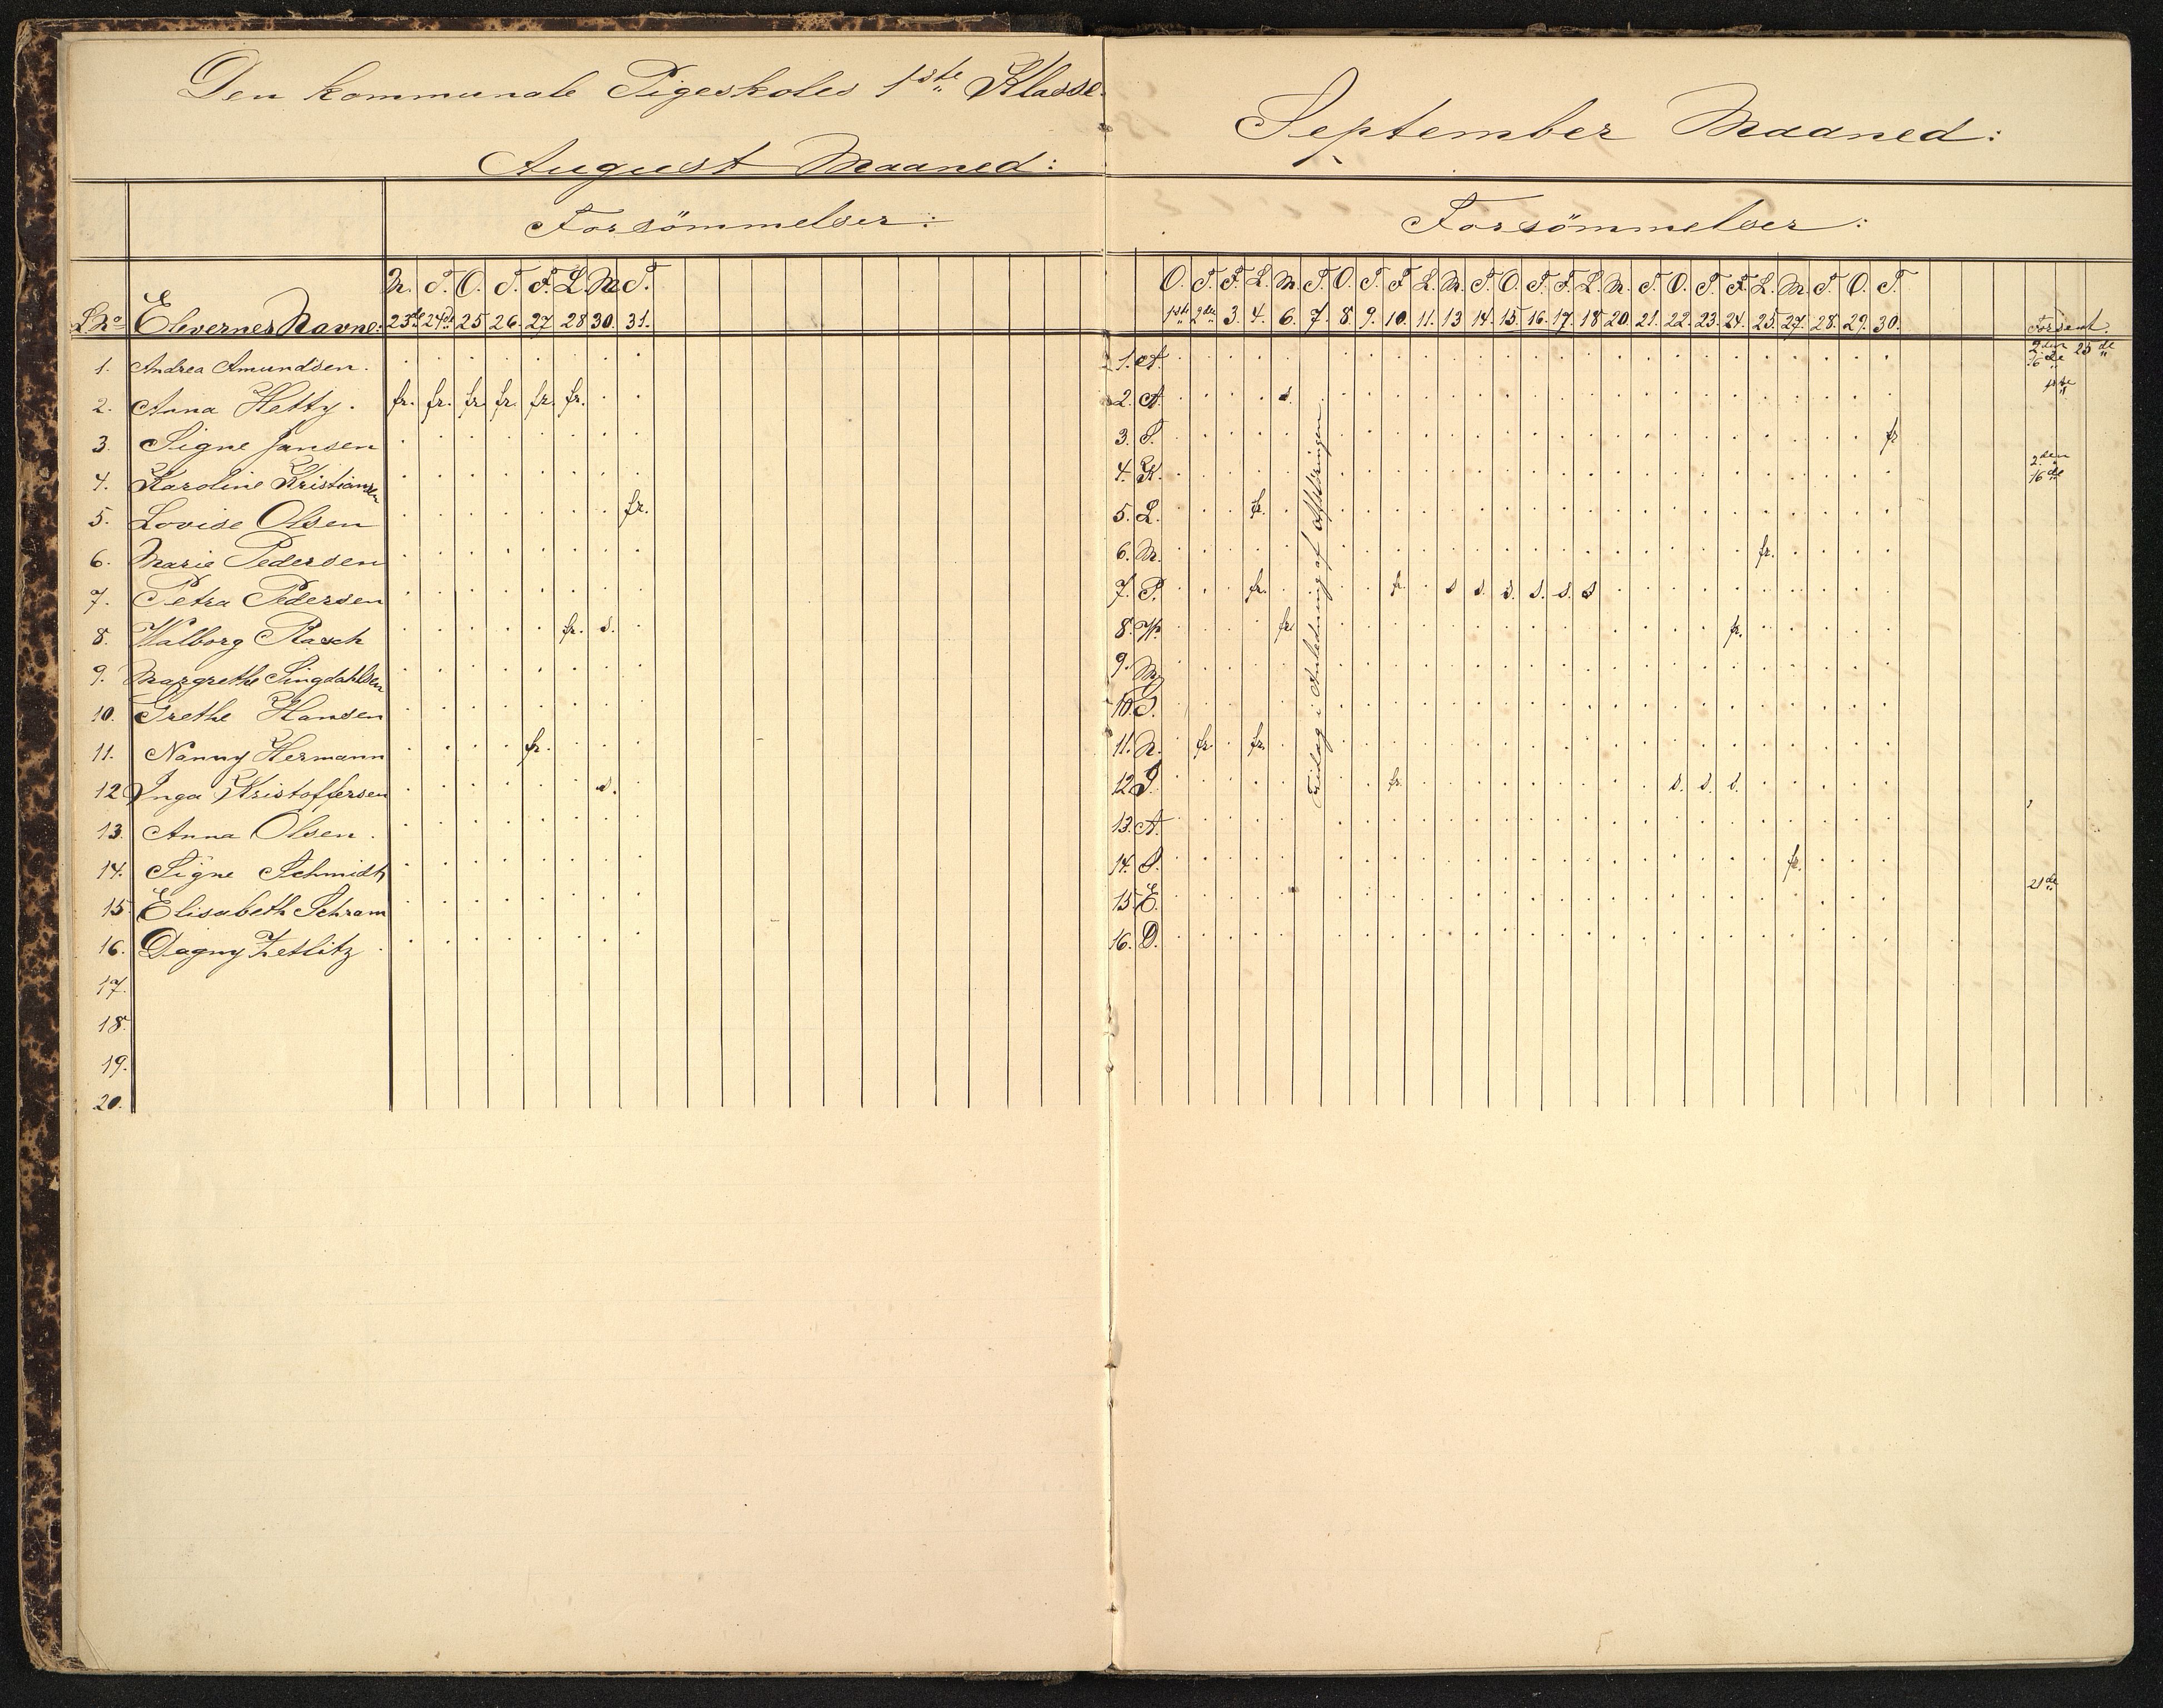 Den kommunale Pigeskoles 1ste Klasse.
August Maaned:
Forsömmelser:
M. T. O. T. F. L. M. T.
LNo Elevernes Navne. 23de 24de 25 26. 27 28 30. 31.
1. Andrea Amundsen.
2. Anna Hetty. fr. fr. fr. fr. fr. fr.
3. Signe Jansen
4. Karoline Kristiansen
5. Lovise Olsen fr.
6. Marie Pedersen
7. Petra Pedersen
8. Valborg Rasch fr. s.
9. Margrethe Singdahlsen
10. Grethe Hansen
11. Nanny Hermann fr.
12 Inga Kristoffersen s.
13. Anna Olsen.
14. Signe Schmidt
15 Elisabeth Schram
16. Dagny Zetlitz
17.
18.
19.
20.
September Maaned:
Forsömmelser:
O. T. F. L. M. T. O. T. F. L. M. T. O. T. F. L. M. T. O. T. F. L. M. T. O. T.
1ste 2den 3. 4. 6. 7. 8. 9. 10. 11. 13 14. 15. 16. 17. 18 20. 21. 22. 23. 24. 25. 27. 28. 29. 30. Forsent.
1. A. 2den 25de
16de
2. A. s. 1ste
3. S. fr
4. K. 2den
16de
5. L. fr.
6. M. fr.
7. P. fr. fr. s s. s. s. s. s
8. V. fr. fr.
9. M.
10. G.
11. N. fr. fr.
12 I. fr. s. s. s.
13. A.
14. S. fr.
15 E. 21de
16. D.
Fridag i Anledning af